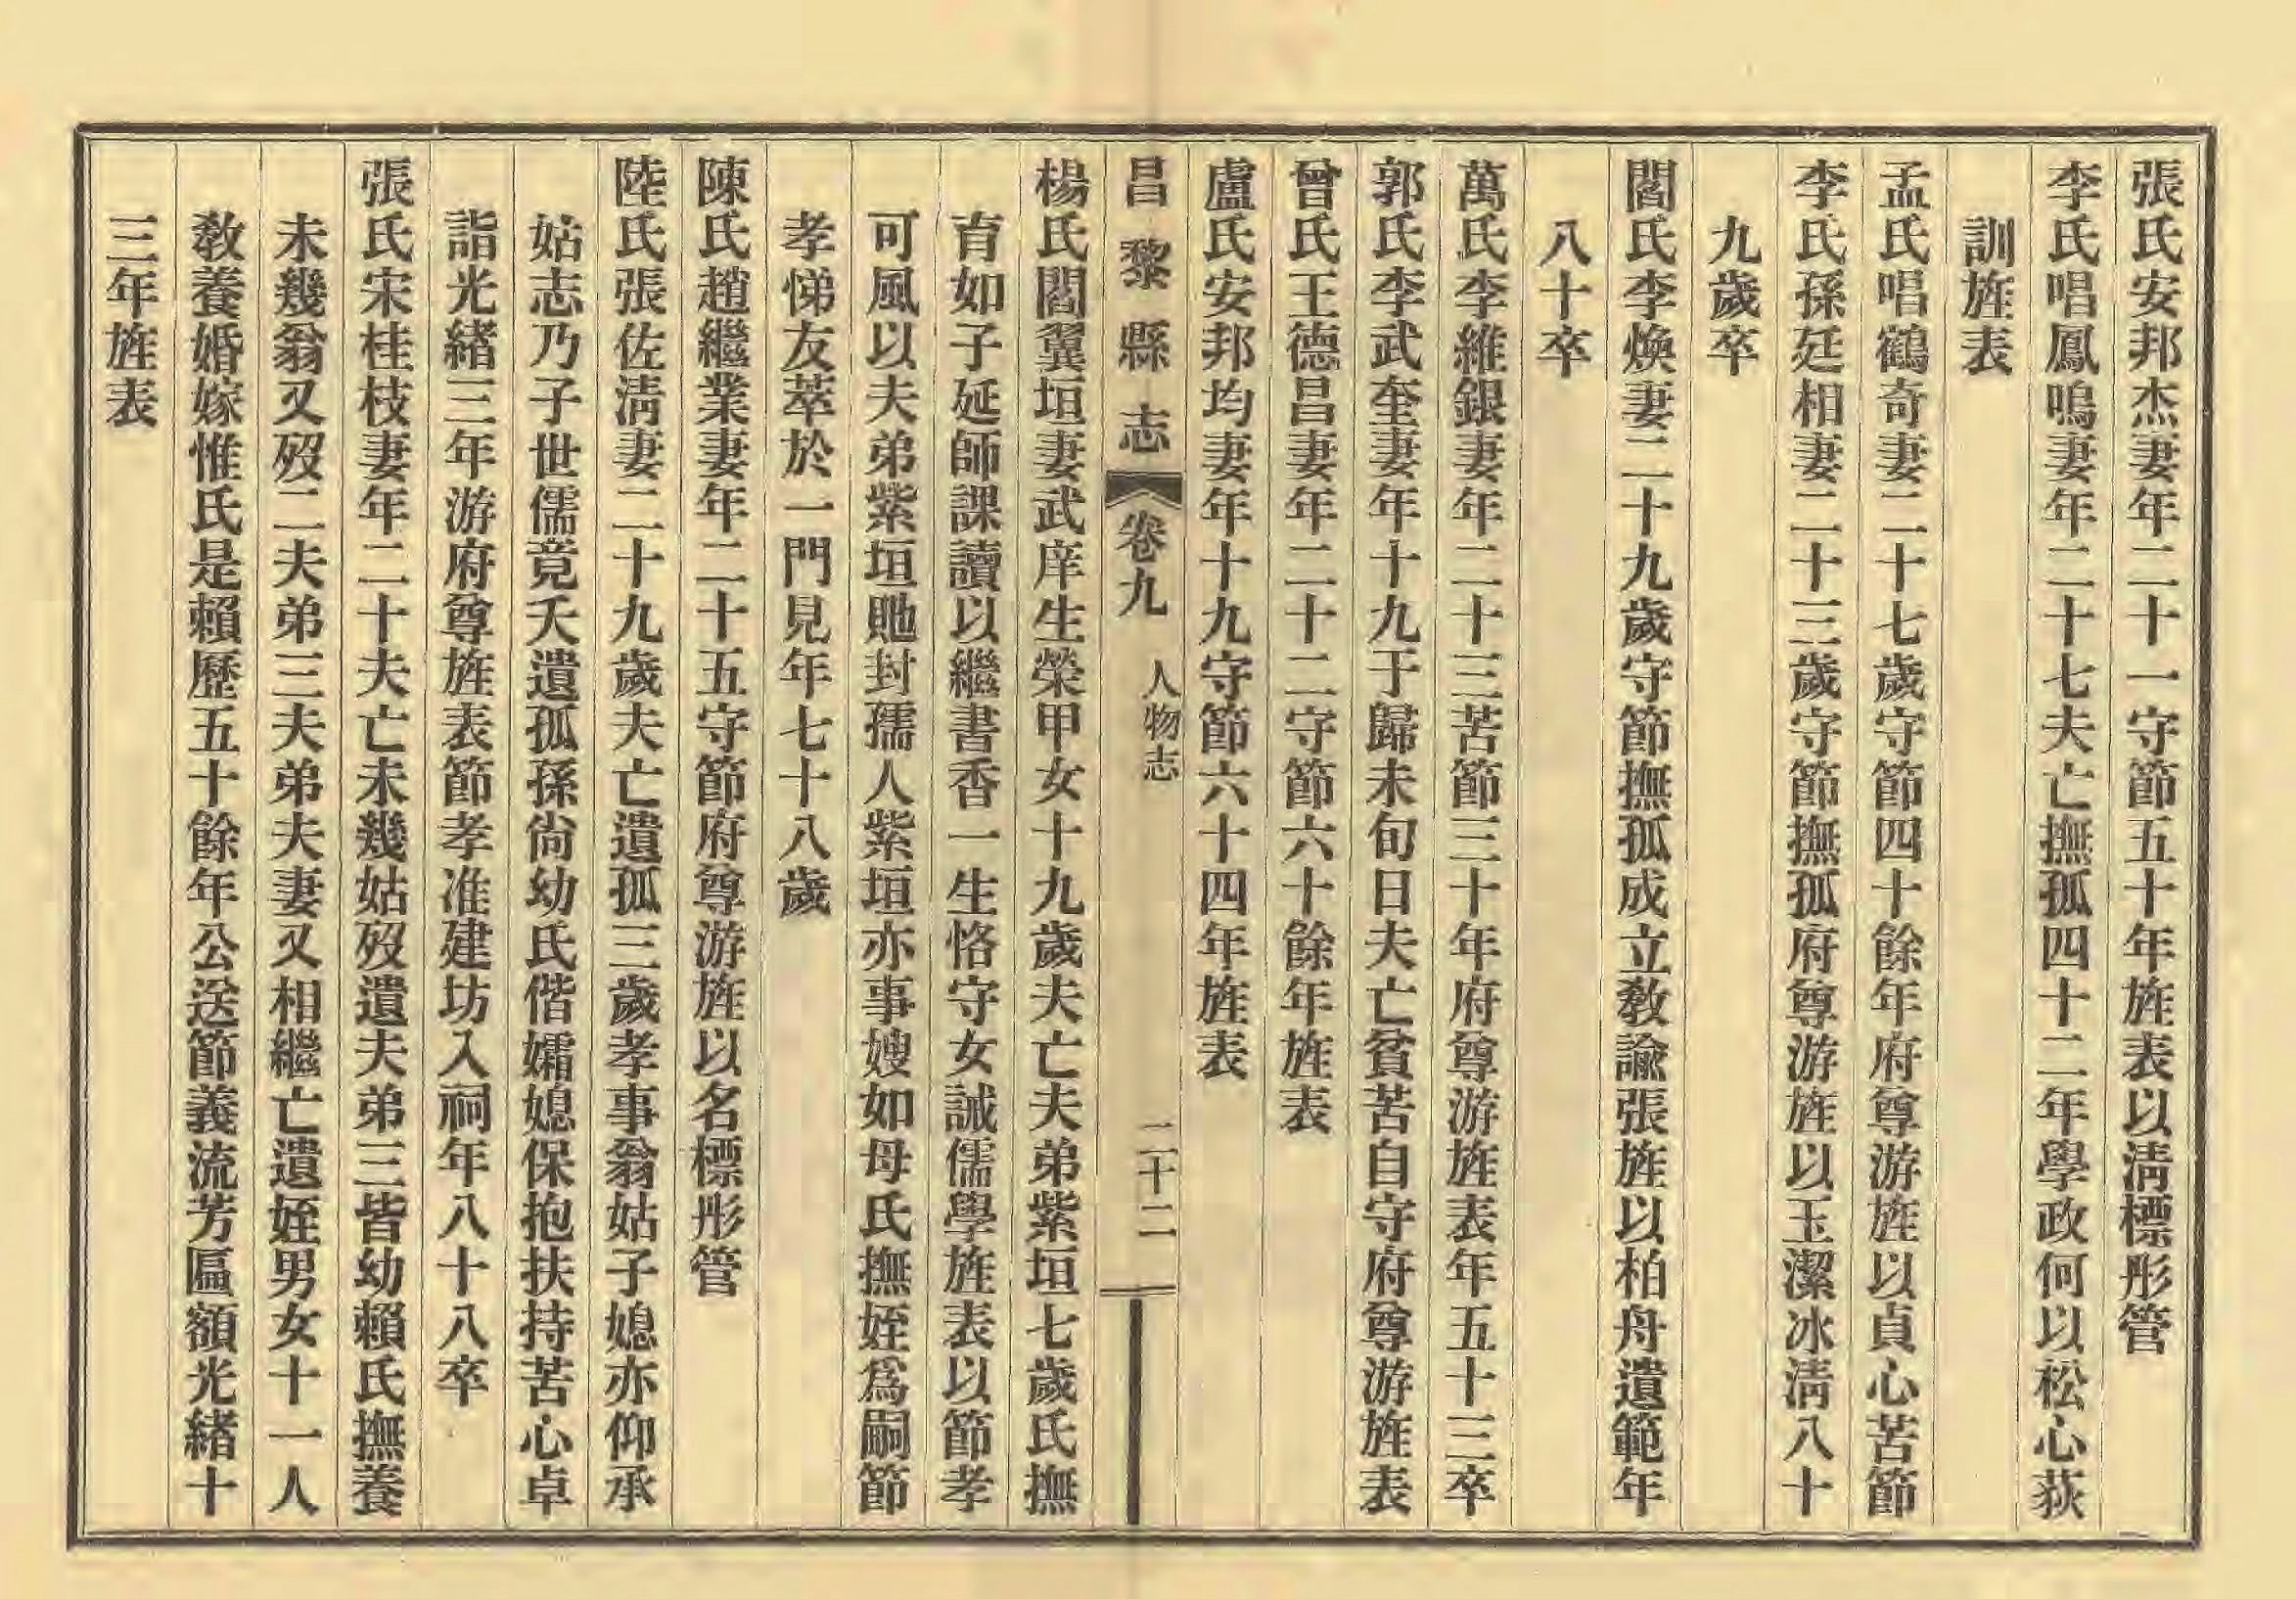 張氏安邦杰妻年二十一守節五十年旌表以淸標彤管
李氏唱鳳鳴妻年二十七夫亡撫孤四十二年學政何以松心荻
訓旌表
孟氏唱鶴奇妻二十七歲守節四十餘年府尊游旌以貞心苦節
李氏孫廷相妻二十三歲守節撫孤府尊游旌以玉潔冰淸八十
九歲卒
閻氏李煥妻二十九歲守節撫孤成立敎諭張旌以柏舟遺範年
八十卒
萬氏李維銀妻年二十三苦節三十年府尊游旌表年五十三卒
郭氏李武奎妻年十九于歸未旬日夫亡貧苦自守府尊游旌表
曾氏王德昌妻年二十二守節六十餘年旌表
盧氏安邦均妻年十九守節六十四年旌表
昌黎縣志 卷九 人物志 二十二
楊氏閻翼垣妻武庠生榮甲女十九歲夫亡夫弟紫垣七歲氏撫
育如子延師課讀以繼書香一生恪守女誡儒學旌表以節孝
可風以夫弟紫垣貤封孺人紫垣亦事嫂如母氏撫姪爲嗣節
孝悌友萃於一門見年七十八歲
陳氏趙繼業妻年二十五守節府尊游旌以名標彤管
陸氏張佐淸妻二十九歲夫亡遺孤三歲孝事翁姑子媳亦仰承
姑志乃子世儒竟夭遺孤孫尙幼氏偕孀媳保抱扶持苦心卓
詣光緖三年游府尊旌表節孝准建坊入祠年八十八卒
張氏宋桂枝妻年二十夫亡未幾姑歿遺夫弟三皆幼賴氏撫養
未幾翁又歿二夫弟三夫弟夫妻又相繼亡遺姪男女十一人
敎養婚嫁惟氏是賴歷五十餘年公送節義流芳匾額光緖十
三年旌表